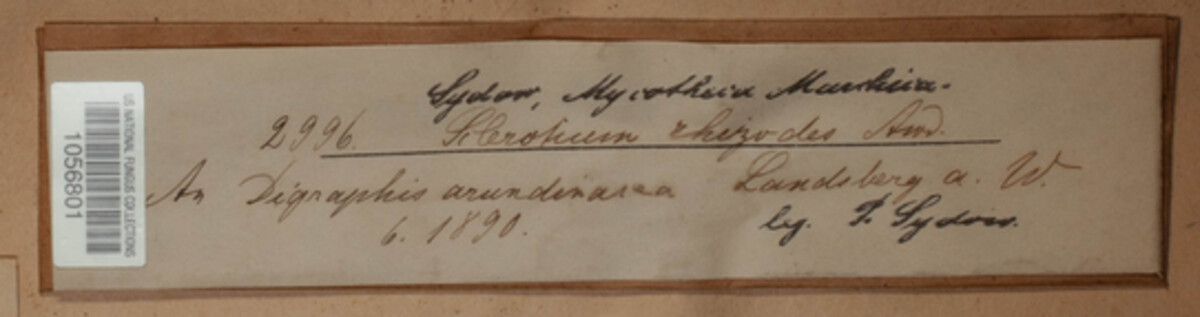 Sydow, Mycotheca Marchica.
2996. Sclerotium rhizodes Awd.
An Digraphis arundinacea Landsberg a. W.
6. 1890.
leg. P. Sydow.
US NATIONAL FUNGUS COLLECTIONS
1056801